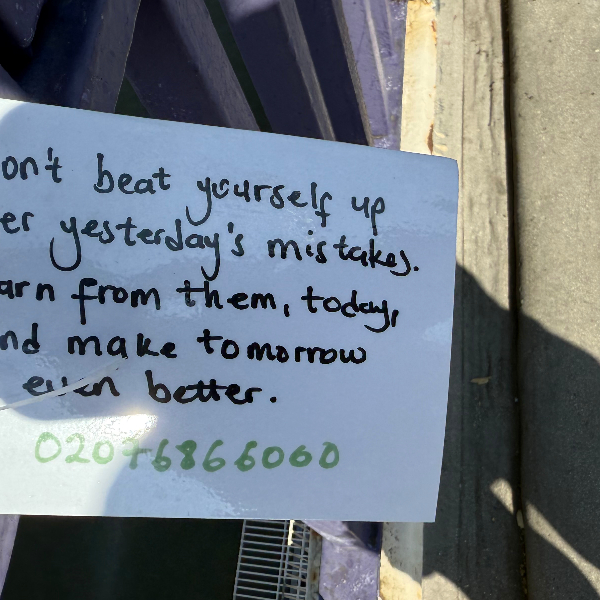 on't beat yourself up
er yesterday's mistakes.
arn from them, today,
nd make tomorrow
even better.
02076866060